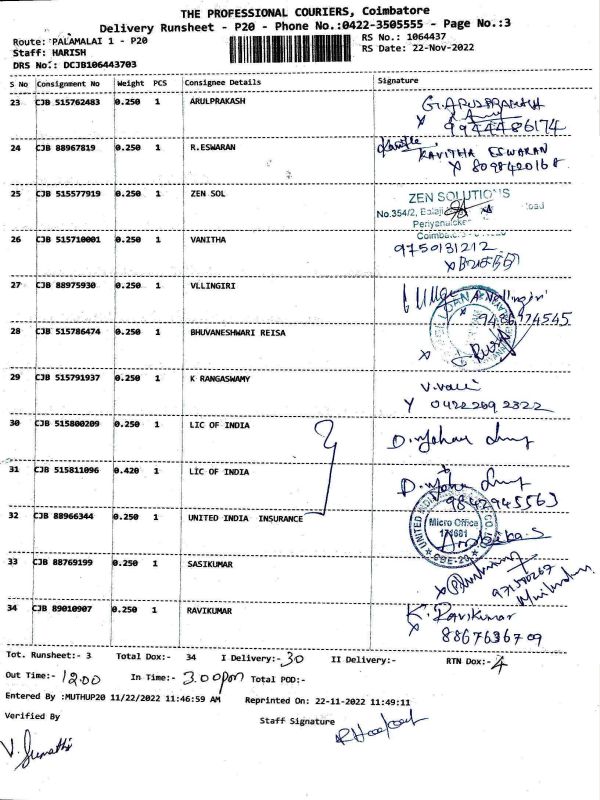 THE PROFESSIONAL COURIERS, Coimbatore
Delivery Runsheet - P20 - Phone No.:0422-3505555 - Page No.:3
Route: PALAMALAI 1 - P20 RS No.: 1064437
Staff: HARISH RS Date: 22-Nov-2022
DRS No.: DCJB106443703
S No Consignment No Weight PCS Consignee Details Signature
23 CJB 515762483 0.250 1 ARULPRAKASH
x 9944486174
24 CJB 88967819 0.250 1 R.ESWARAN KAVITHA ESWARAN
x 8098420168
25 CJB 515577919 0.250 1 ZEN SOL ZEN SOLUTIONS
No.354/2,
26 CJB 515710001 0.250 1 VANITHA 9750131212
27 CJB 88975930 0.250 1 VLLINGIRI
9486974545
28 CJB 515786474 0.250 1 BHUVANESHWARI REISA
29 CJB 515791937 0.250 1 K RANGASWAMY
0422 269 2322
30 CJB 515800209 0.250 1 LIC OF INDIA D. Mohan
31 CJB 515811096 0.420 1 LIC OF INDIA D. Mohan
9842945563
32 CJB 88966344 0.250 1 UNITED INDIA INSURANCE Micro Office
171681
CBE-20
33 CJB 88769199 0.250 1 SASIKUMAR
34 CJB 89010907 0.250 1 RAVIKUMAR K. Ravikumar
x 8867636709
Tot. Runsheet:- 3 Total Dox:- 34 I Delivery:- 30 II Delivery:- RTN Dox:- 4
Out Time:- 12.00 In Time:- 3.00pm Total POD:-
Entered By :MUTHUP20 11/22/2022 11:46:59 AM Reprinted On: 22-11-2022 11:49:11
Verified By Staff Signature
V. Sumathi